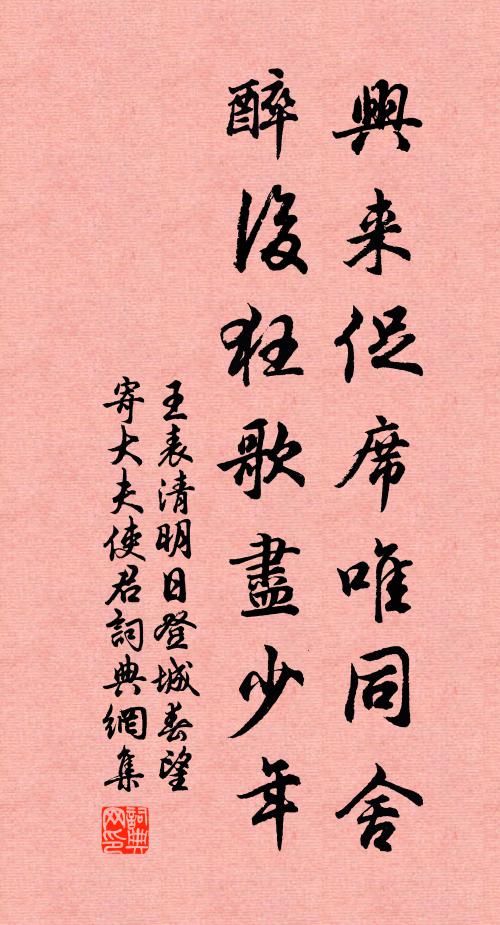 興来促席唯同舍
醉後狂歌盡少年
王表清明日登城春望
寄大夫使君詞典網集
詞典
网印